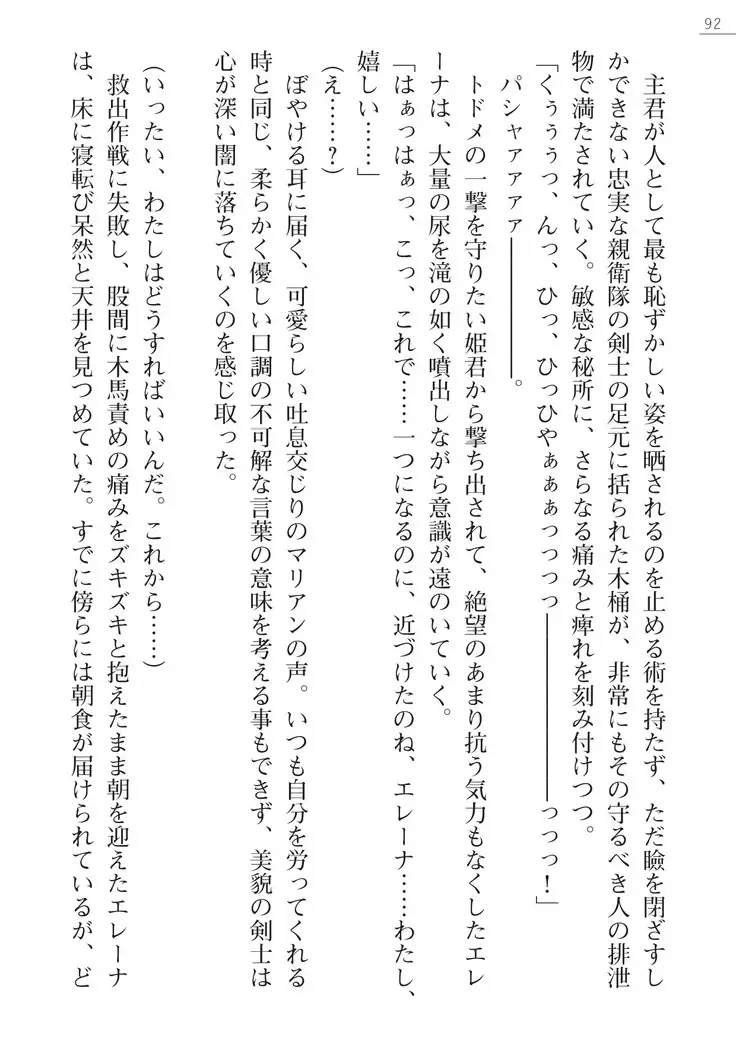 92
主君が人として最も恥ずかしい姿を晒されるのを止める術を持たず、ただ瞼を閉ざすし
かできない忠実な親衛隊の剣士の足元に括られた木桶が、非常にもその守るべき人の排泄
物で満たされていく。敏感な秘所に、さらなる痛みと痺れを刻み付けつつ。
「くぅぅぅっ、んっ、ひっ、ひっひやぁぁぁっっっっ――――――――っっっ！」
パシャァァァァ――――――。
トドメの一撃を守りたい姫君から撃ち出されて、絶望のあまり抗う気力もなくしたエレ
ーナは、大量の尿を滝の如く噴出しながら意識が遠のいていく。
「はぁっはぁっ、こっ、これで……一つになるのに、近づけたのね、エレーナ……わたし、
嬉しい……」
（え……？）
ぼやける耳に届く、可愛らしい吐息交じりのマリアンの声。いつも自分を労ってくれる
時と同じ、柔らかく優しい口調の不可解な言葉の意味を考える事もできず、美貌の剣士は
心が深い闇に落ちていくのを感じ取った。
（いったい、わたしはどうすればいいんだ。これから……）
救出作戦に失敗し、股間に木馬責めの痛みをズキズキと抱えたまま朝を迎えたエレーナ
は、床に寝転び呆然と天井を見つめていた。すでに傍らには朝食が届けられているが、ど